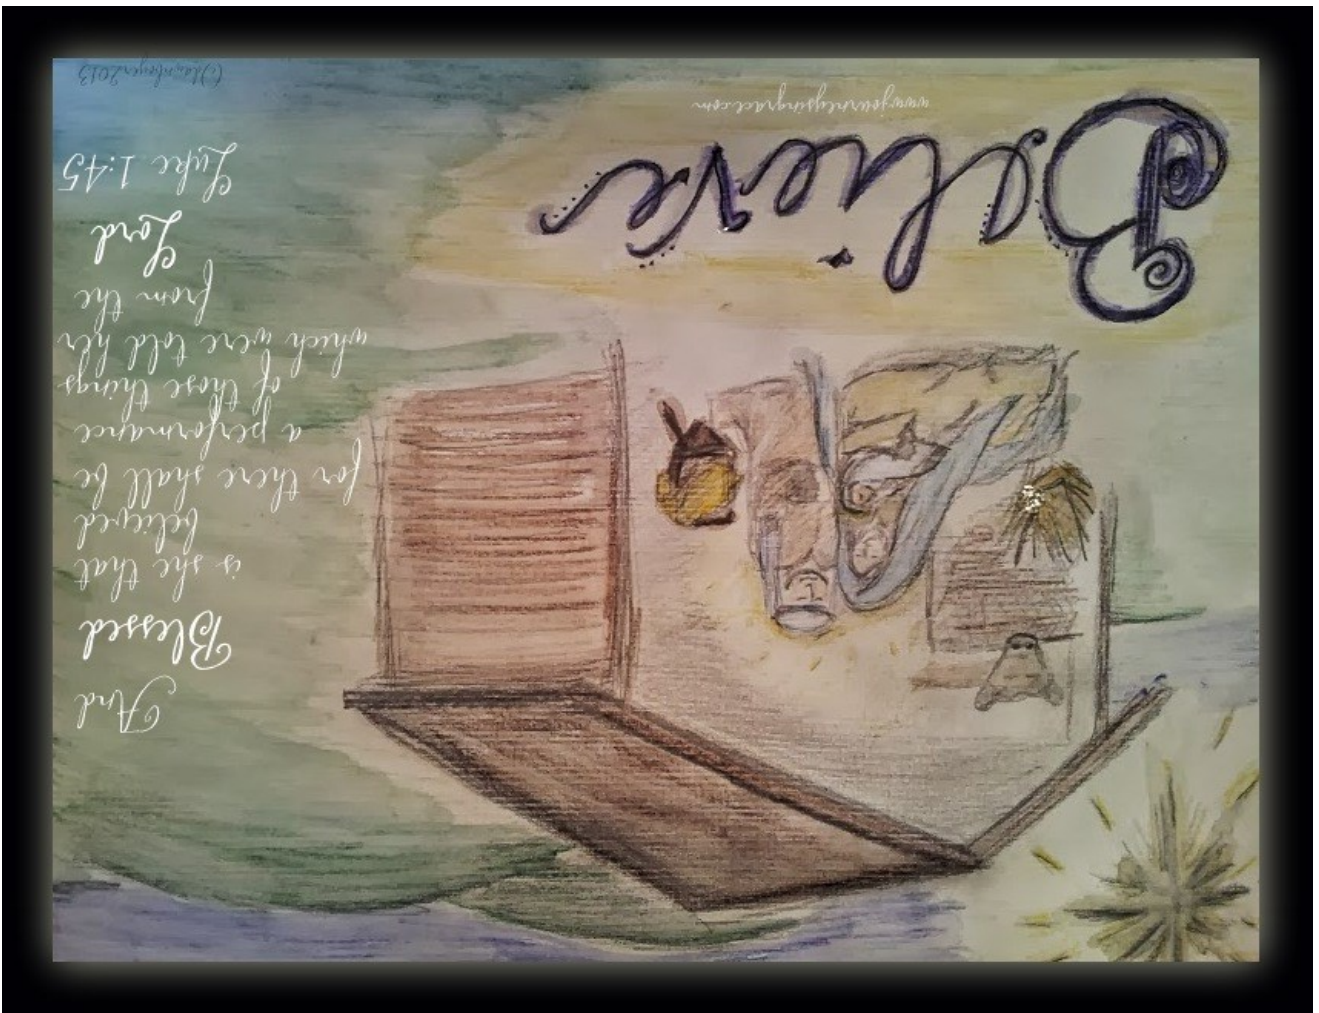 And
Blessed
is she that
believed
for there shall be
a performance
of those things
which were told her
from the
Lord
Luke 1:45
Believe
www.journeysingrace.com
(c)dawnboyer2013